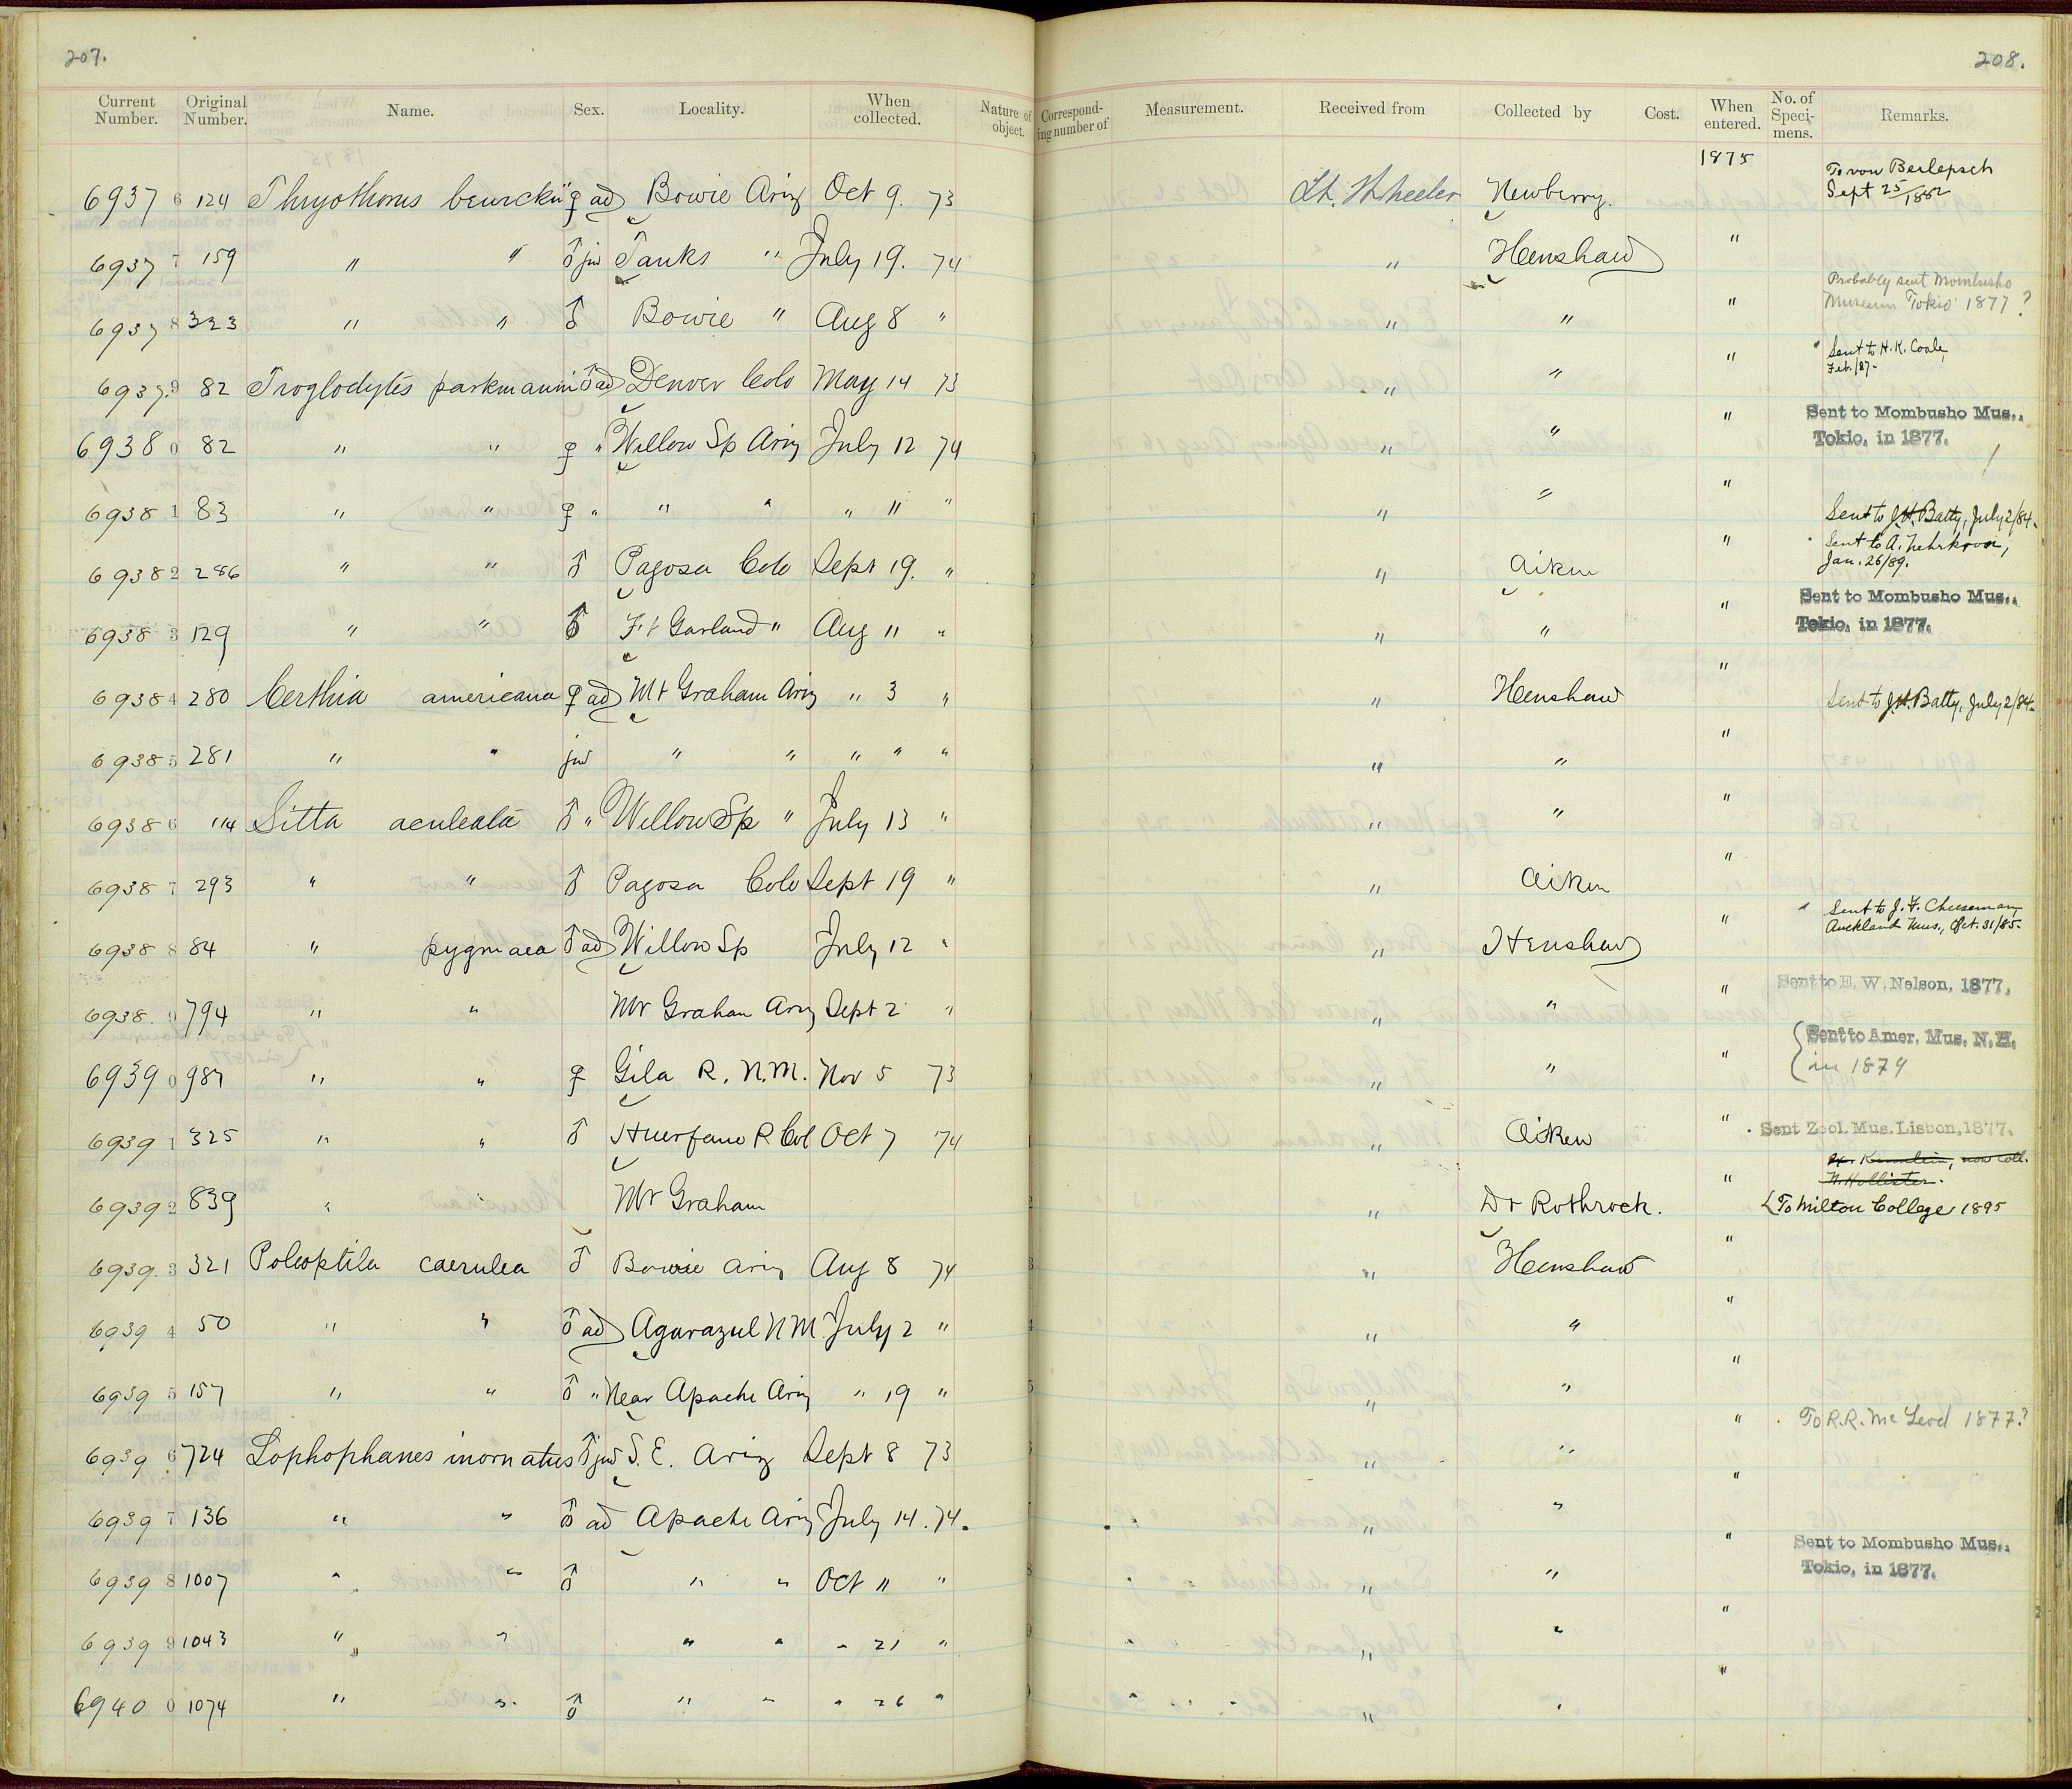 207.
208.
Current Number. Original Number. Name. Sex. Locality. When collected. Nature of object. Corresponding number of Measurement. Received from Collected by Cost. When entered. No. of Specimens. Remarks.
69376 124 Thryothorus bewickii ♀ ad Bowie Ariz Oct 9. 73 Lt. Wheeler Newberry. 1875 To von Berlepsch Sept 25/1882
69377 159 " " ♂ juv Tanks " July 19. 74 " Henshaw "
69378 323 " " ♂ Bowie " Aug 8 " " " " Probably sent Mombusho Museum Tokio 1877?
69379 82 Troglodytes parkmanni ♂ ad Denver Colo May 14 73 " " " Sent to H.K. Coale, Feb. /87-
69380 82 " " ♀ " Willow Sp Ariz July 12 74 " " " Sent to Mombusho Mus., Tokio, in 1877.
69381 83 " " ♀ " " " " 11 " " " " Sent to J.H. Batty, July 2/84.
69382 286 " " ♂ Pagosa Colo Sept 19. " " Aiken " Sent to A. Jan. 26/89.
69383 129 " " ♂ Ft Garland " Aug 11 " " " " Sent to Mombusho Mus., Tokio, in 1877.
69384 280 Certhia americana ♀ ad Mt Graham Ariz " 3 " " Henshaw " Sent to J.H. Batty, July 2/84-
69385 281 " " juv " " " " " " " "
69386 114 Sitta aculeata ♂ " Willow Sp " July 13 " " " "
69387 293 " " ♂ Pagosa Colo Sept 19 " " Aiken "
69388 84 " pygmaea ♂ ad Willow Sp July 12 " " Henshaw " Sent to J. F. Cheeseman, Auckland Mus., Oct. 31/85-
69389 794 " " Mt Graham Ariz Sept 2 " " " " Sent to E. W. Nelson, 1877.
69390 987 " " ♀ Gila R. N.M. Nov 5 73 " " " Sent to Amer. Mus. N. H. in 1879
69391 325 " " ♂ Huerfano R Col Oct 7 74 " Aiken " Sent Zool. Mus. Lisbon, 1877.
69392 839 " " Mt Graham " Dr Rothrock. " now coll. N. Hollister. To Milton College 1895
69393 321 Polioptila caerulea ♂ Bowie Ariz Aug 8 74 " Henshaw "
69394 50 " " ♂ ad Agurazul N M. July 2 " " " "
69395 157 " " ♂ " Near Apache Ariz " 19 " " " "
69396 724 Lophophanes inornatus ♂ juv S. E. Ariz Sept 8 73 " " " To R.R. McLeod 1877?
69397 136 " " ♂ ad Apache Ariz July 14. 74. " " "
69398 1007 " " ♂ " " Oct 11 " " " " Sent to Mombusho Mus., Tokio, in 1877.
69399 1043 " " " " " 21 " " " "
69400 1074 " " ♂ " " " 26 " " " "